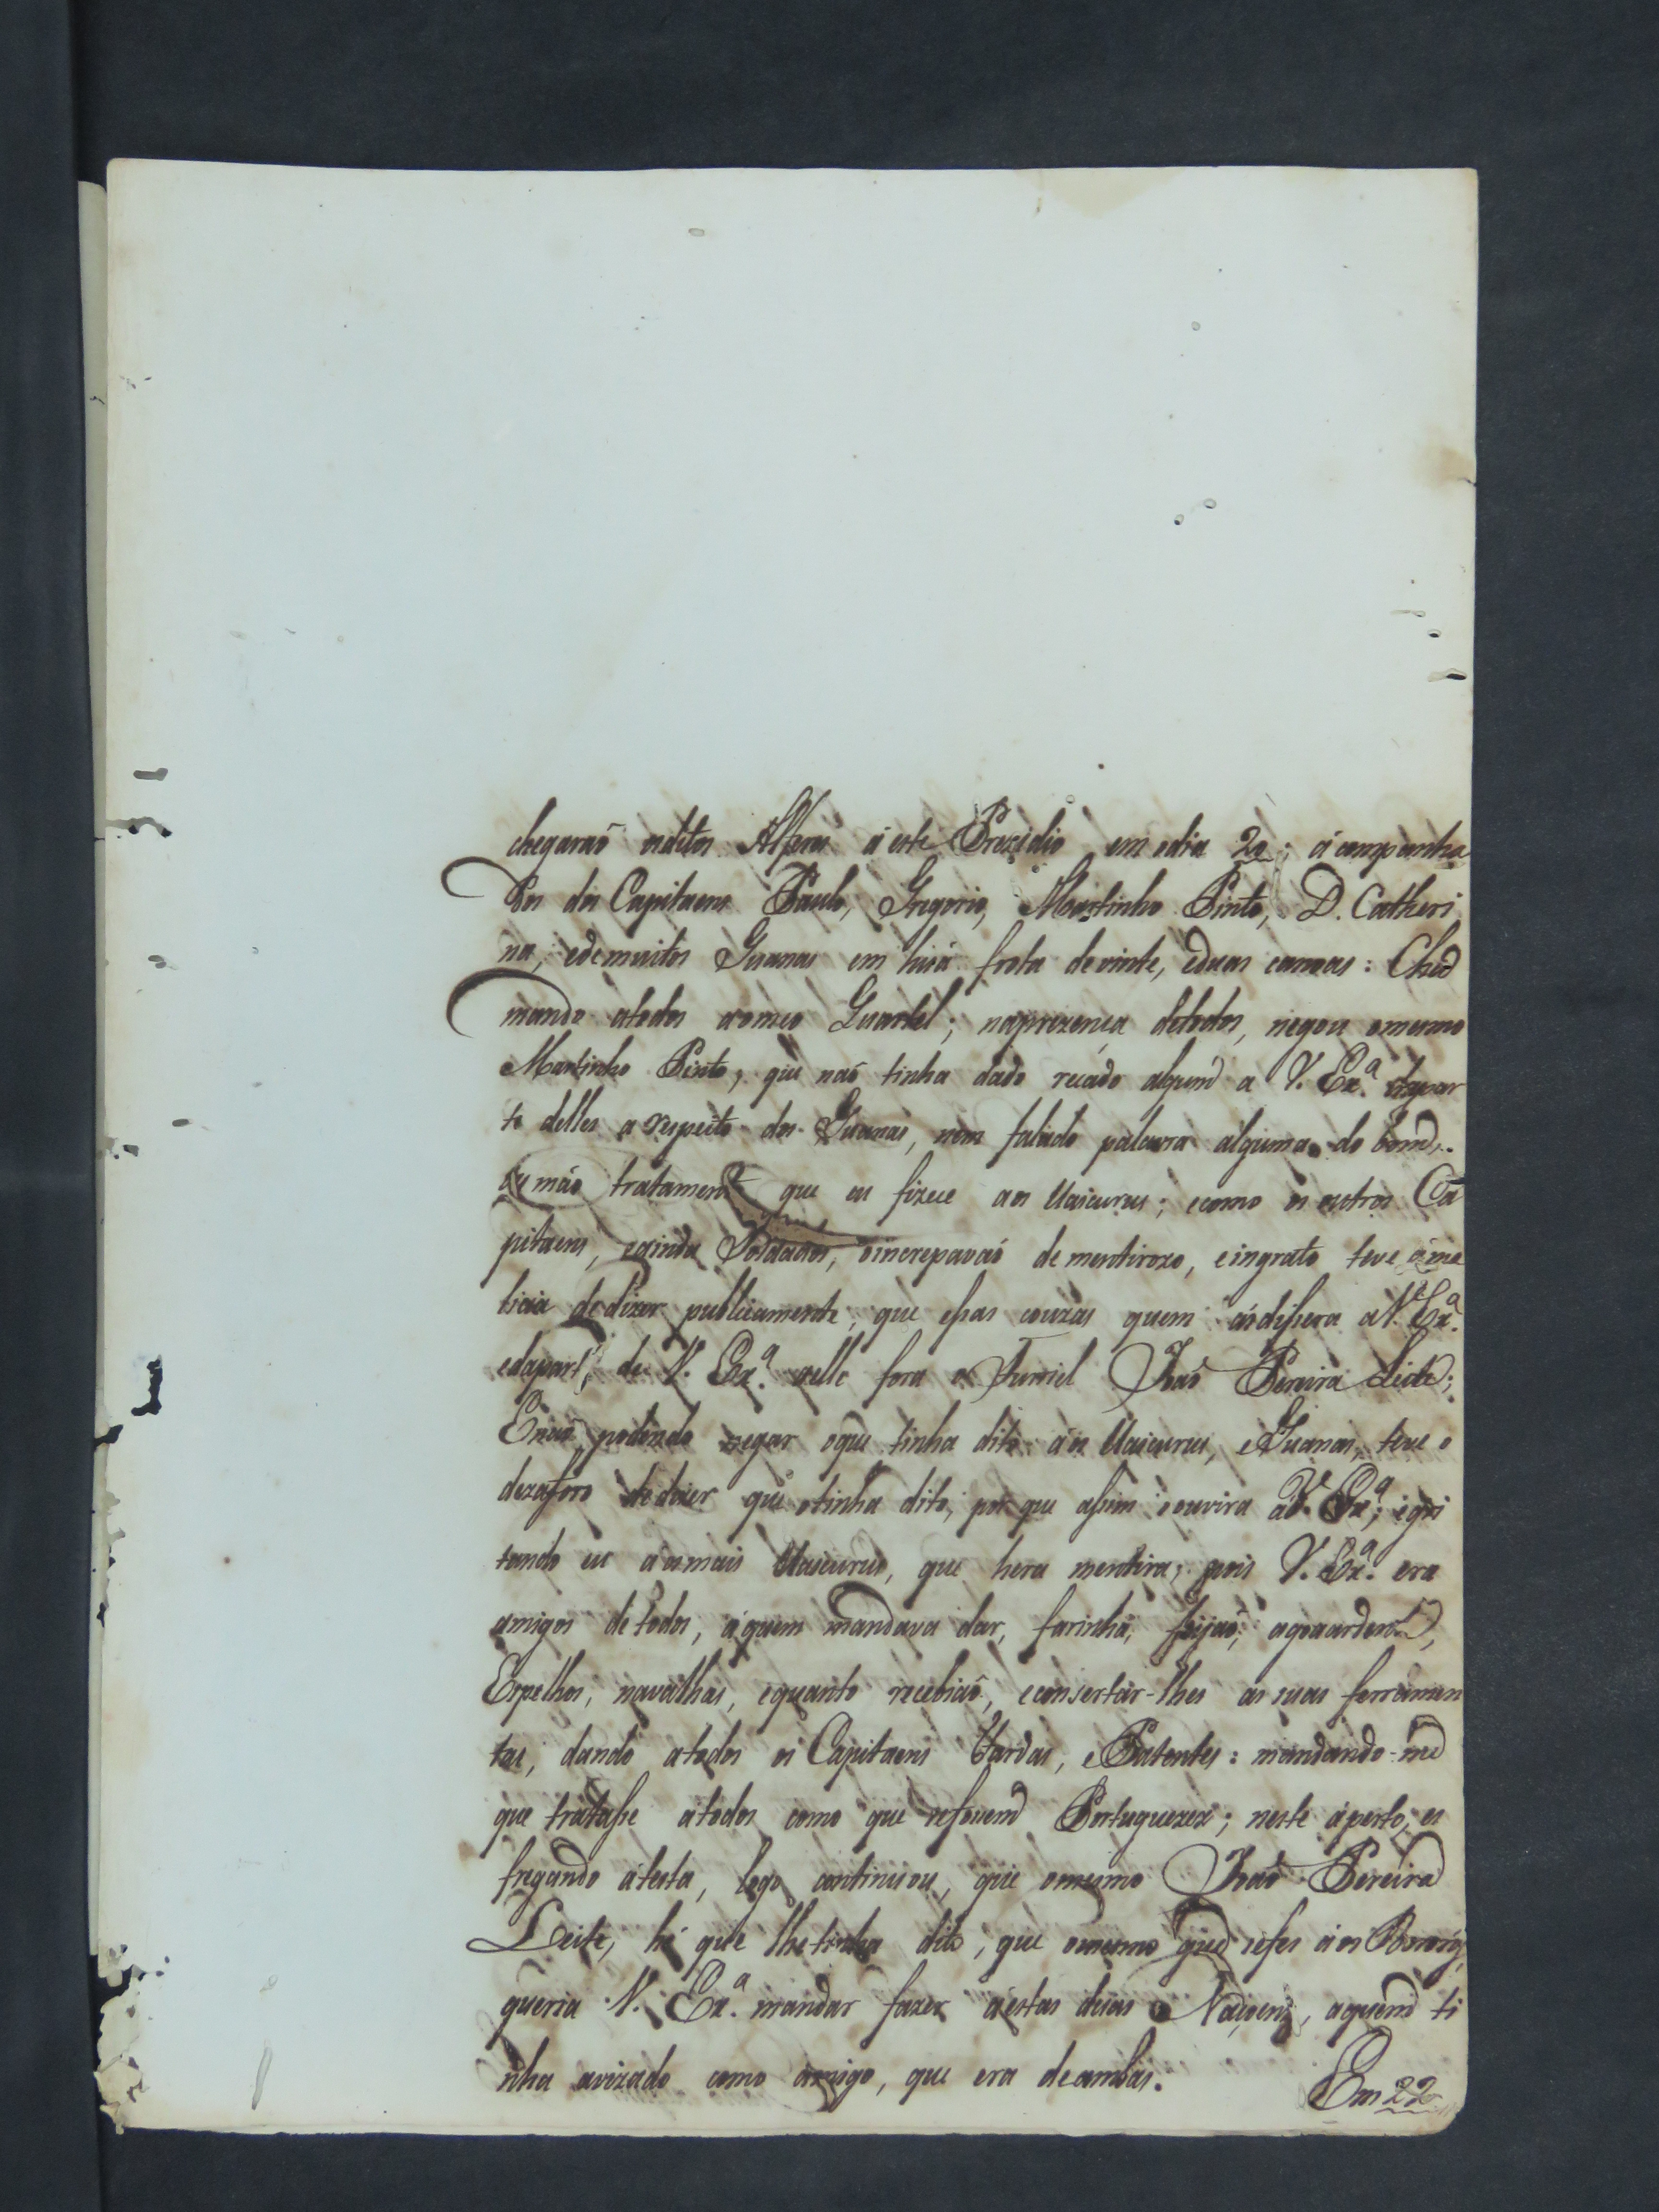 chegaraõ osditos Alferes á este Prezidio em odia 20; ácompanha
dos dos Capitaens Paulo, Gregorio, Martinho Pinto, D. Catheri
na, edemuitos Guanas em huá frota devinte, eduas canoas: Cha
mando atodos aomeo Quartel; naprezença detodos, negou omesmo
Martinho Pinto, que naõ tinha dado recádo algum a V. Exª. depar
te delles a respeito dos Guanas, nem falado palavra alguma do bom,
ou máo tratament que eu fizece aos Uaicurus; ecomo os outros Ca
pitaens, eainda Soldados, oincrepavaõ de mentirozo, eingrato teve áma
licia dedizer publicamente, que essas couzas quem ásdissera aV. Exª.
edapart, de V. Exª. aelle fora o Furriel Joaõ Pereira Leite;
Enaõ podendo negar oque tinha dito áos Uaicurus, eGuanas, teve o
dezaforo dedizer que otinha dito, por que assim oouvira aV. Exª; egri
tando eu áomais Uaicurus, que hera mentira, pois V. Exª. era
amigos detodos, áquem mandava dar, farinha, feijaõ, agoaardente,
Espelhos, navalhas, equanto recebiaõ, econsertar-lhes as suas ferramen
tas, dando atodos os Capitaens Fardas, ePatentes: mandando-me
que tratasse atodos como que sefossem Portuguezes; neste áperto, es
fregando átesta, logo continuou, que omesmo Joaõ Pereira
Leite, hé que lhetinha dito, que omesmo que sefes áos Bororos,
queria V. Exª. mandar fazer áestas duas Naçoens, aquem ti
nha avizado como amigo, que era deambas.
Em 22